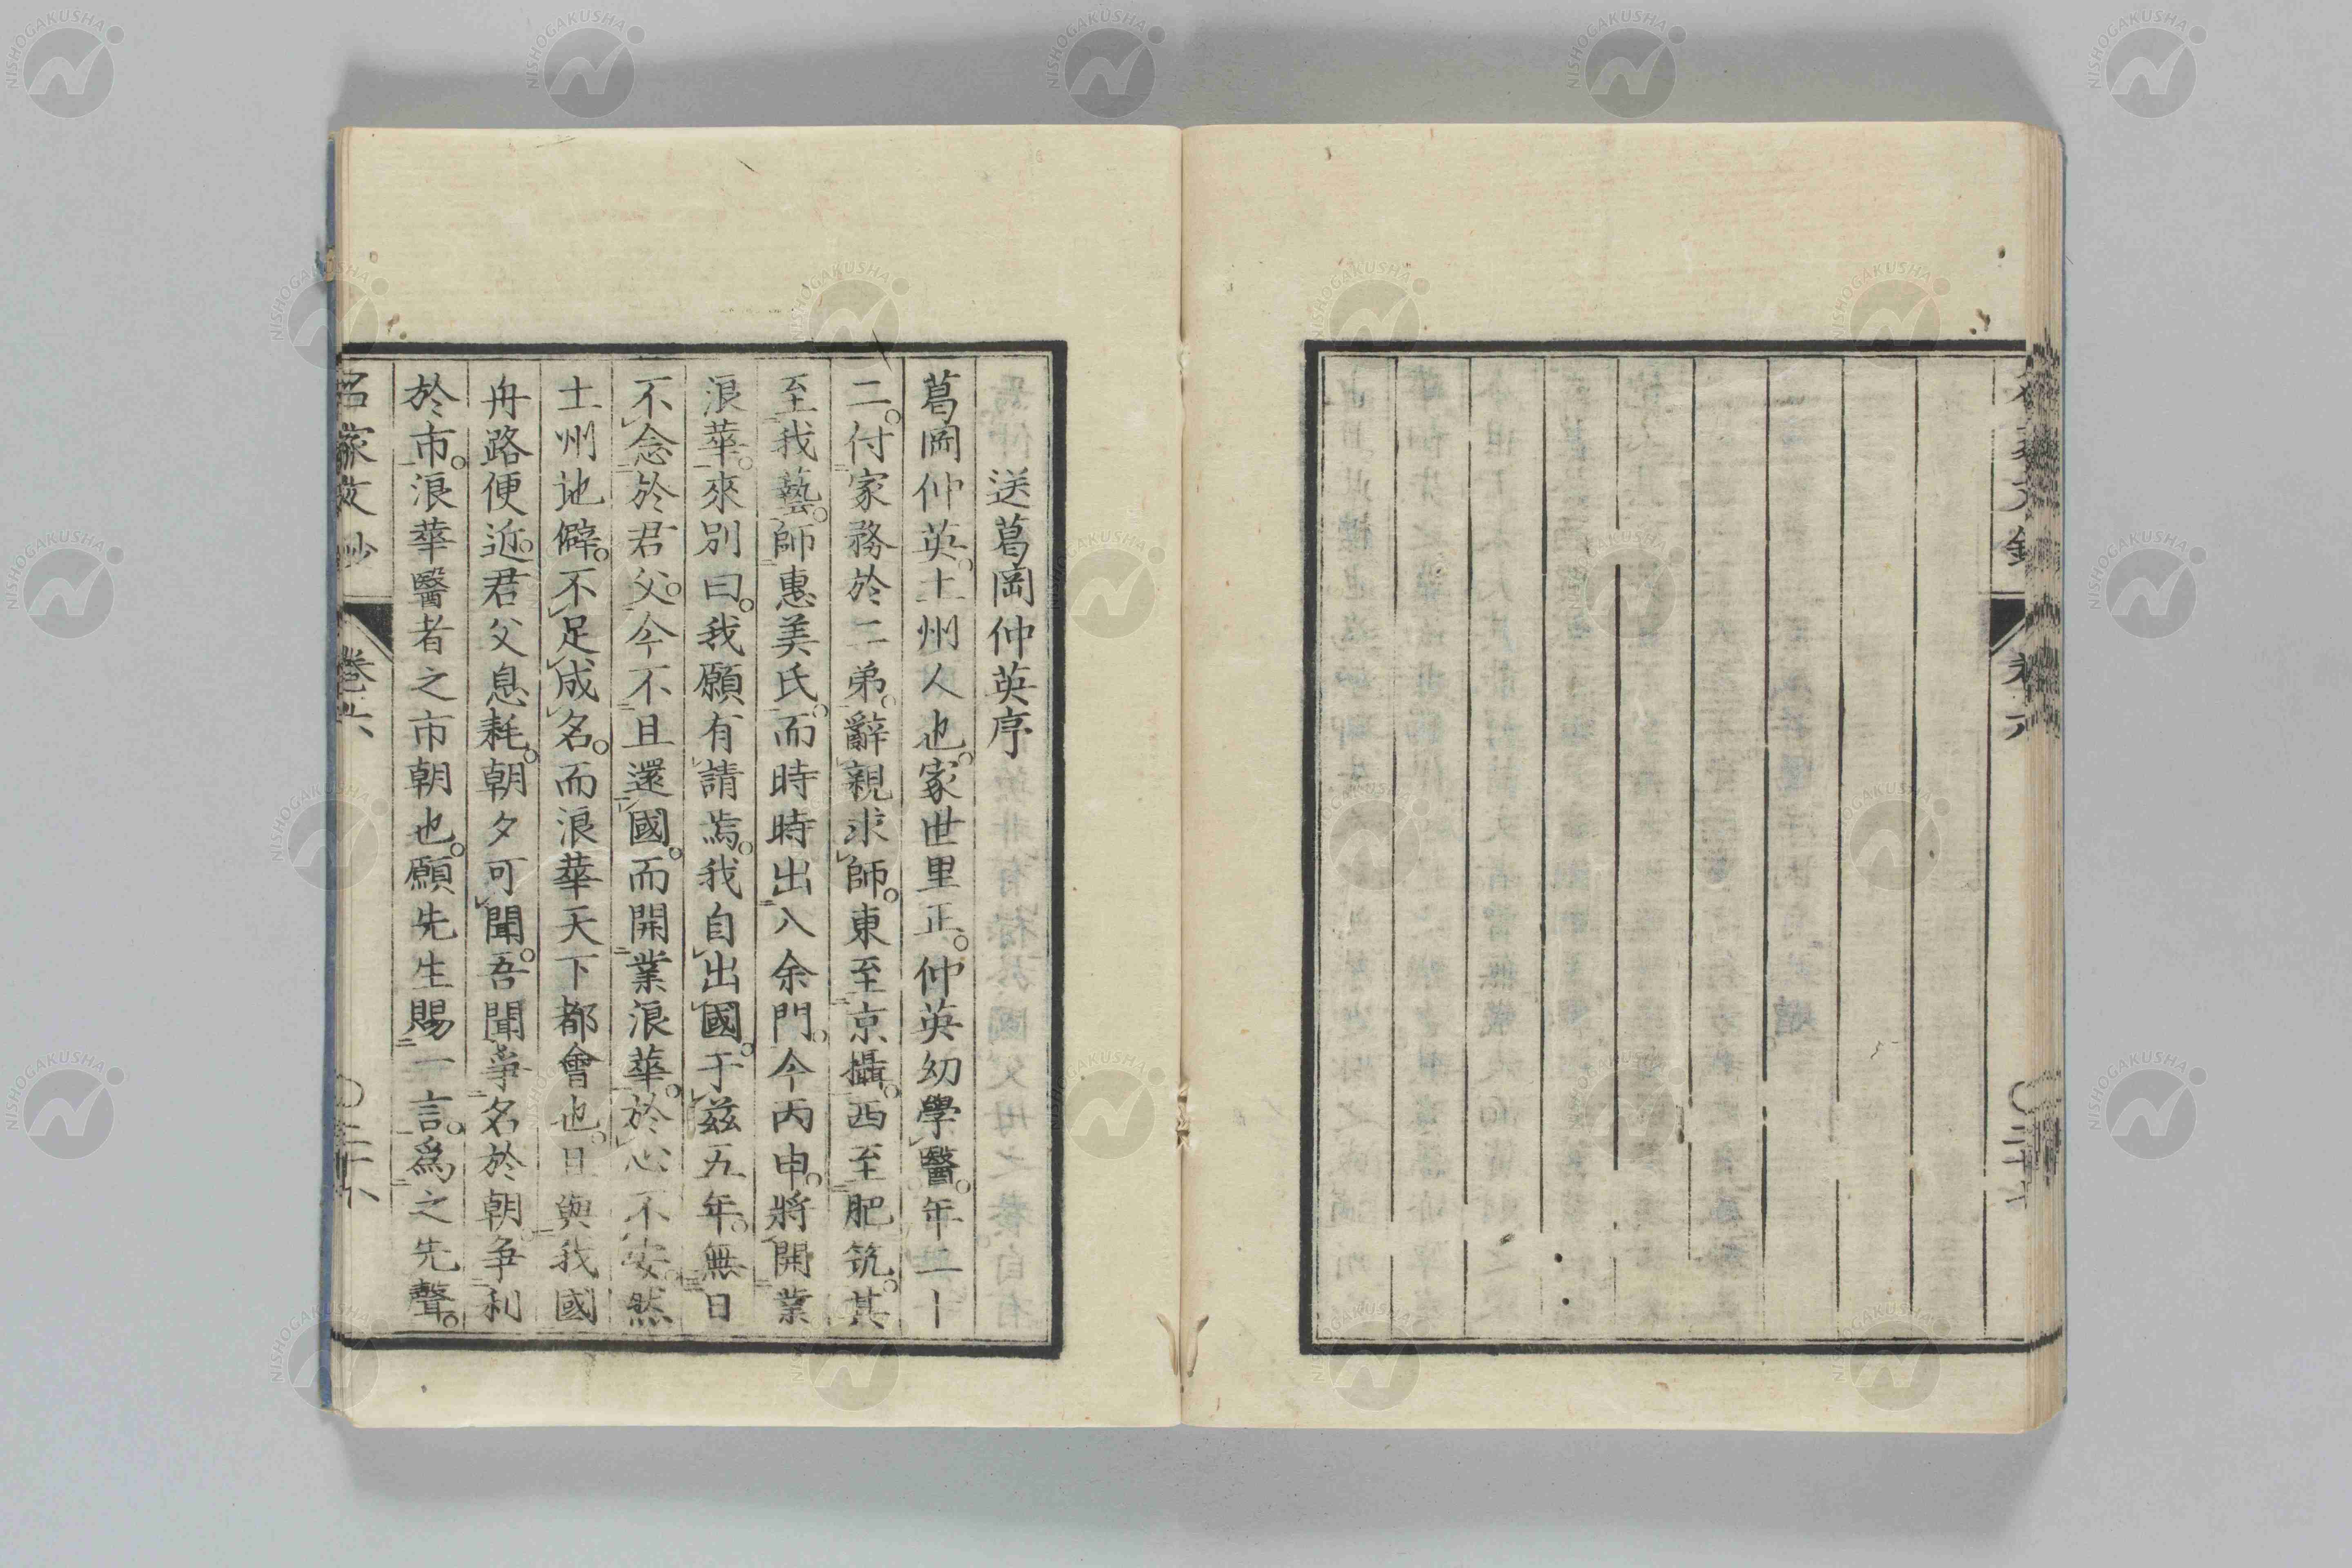 卷六
送葛岡仲英序
葛岡仲英。土州人也。家世里正。仲英幼學醫。年二十
二。付家務於二弟。辭親求師。東至京攝。西至肥筑。其
至我藝。師惠美氏。而時時出入余門。今丙申。將開業
浪華。來別曰。我願有請焉。我自出國。于兹五年。無日
不念於君父。今不且還國。而開業浪華。於心不安。然
土州地僻。不足成名。而浪華天下都會也。且與我國
舟路便近。君父息耗。朝夕可聞。吾聞爭名於朝。争利
於市。浪華醫者之市朝也。願先生賜一言。爲之先聲。
名家文抄 卷六
NISHOGAKUSHA